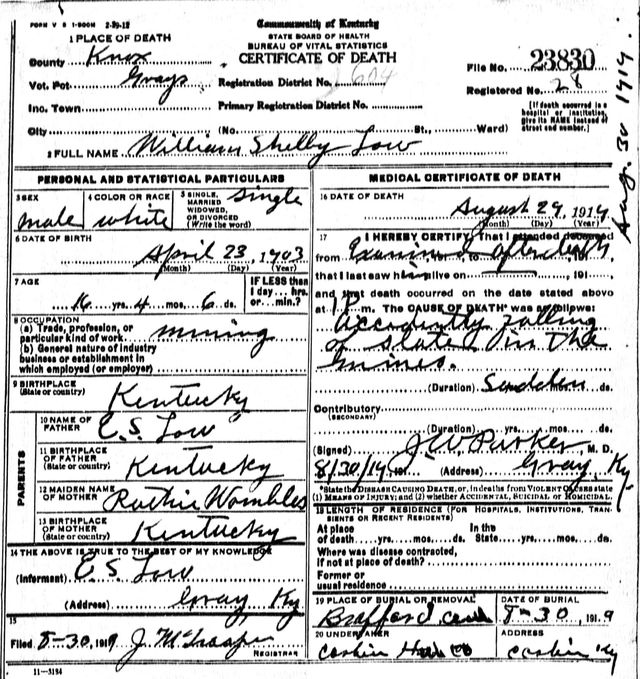 FORM V S 1-500M 2-29-12
Commonwealth of Kentucky
STATE BOARD OF HEALTH
BUREAU OF VITAL STATISTICS
CERTIFICATE OF DEATH
1 PLACE OF DEATH
County Knox
Vot. Pct Grays
Inc. Town
City (No. St., Ward)
Registration District No.
Primary Registration District No.
File No. 23830
Registered No. 28
[If death occurred in a hospital or institution, give its NAME instead of street and number.]
Aug. 30 1919.
2 FULL NAME William Shelby Low
PERSONAL AND STATISTICAL PARTICULARS
3 SEX male
4 COLOR OR RACE white
5 SINGLE, MARRIED WIDOWED, OR DIVORCED (Write the word) single
6 DATE OF BIRTH
April 23, 1903
(Month) (Day) (Year)
7 AGE
16 yrs. 4 mos. 6 ds.
IF LESS than 1 day...hrs. or...min.?
8 OCCUPATION
(a) Trade, profession, or particular kind of work mining
(b) General nature of industry business or establishment in which employed (or employer)
9 BIRTHPLACE
(State or country) Kentucky
PARENTS
10 NAME OF FATHER E.S. Low
11 BIRTHPLACE OF FATHER (State or country) Kentucky
12 MAIDEN NAME OF MOTHER Ruthie Wombles
13 BIRTHPLACE OF MOTHER (State or country) Kentucky
14 THE ABOVE IS TRUE TO THE BEST OF MY KNOWLEDGE
(Informant) E S Low
(Address) Gray Ky
15
Filed 8-30, 1919
REGISTRAR
11-3184
MEDICAL CERTIFICATE OF DEATH
16 DATE OF DEATH
August 29, 1919
(Month) (Day) (Year)
17 I HEREBY CERTIFY, That I attended deceased
from Examined to after death,
that I last saw him alive on , 191
and that death occurred on the date stated above
at 1 P m. The CAUSE OF DEATH* was as follows:
Accidently falling
of slate in the
mines.
(Duration) Sudden ds.
Contributory
(SECONDARY)
(Duration) yrs. mos. ds.
(Signed) J W Parker, M. D.
8/30/19, 191 (Address) Gray, Ky
*State the DISEASE CAUSING DEATH, or, in deaths from VIOLENT CAUSES state
(1) MEANS OF INJURY; and (2) whether ACCIDENTAL, SUICIDAL or HOMICIDAL.
18 LENGTH OF RESIDENCE (FOR HOSPITALS, INSTITUTIONS, TRANSIENTS OR RECENT RESIDENTS)
At place of death yrs. mos. ds. In the State yrs. mos. ds.
Where was disease contracted,
if not at place of death?
Former or
usual residence
19 PLACE OF BURIAL OR REMOVAL
DATE OF BURIAL
8-30, 1919
20 UNDERTAKER
ADDRESS
Ky